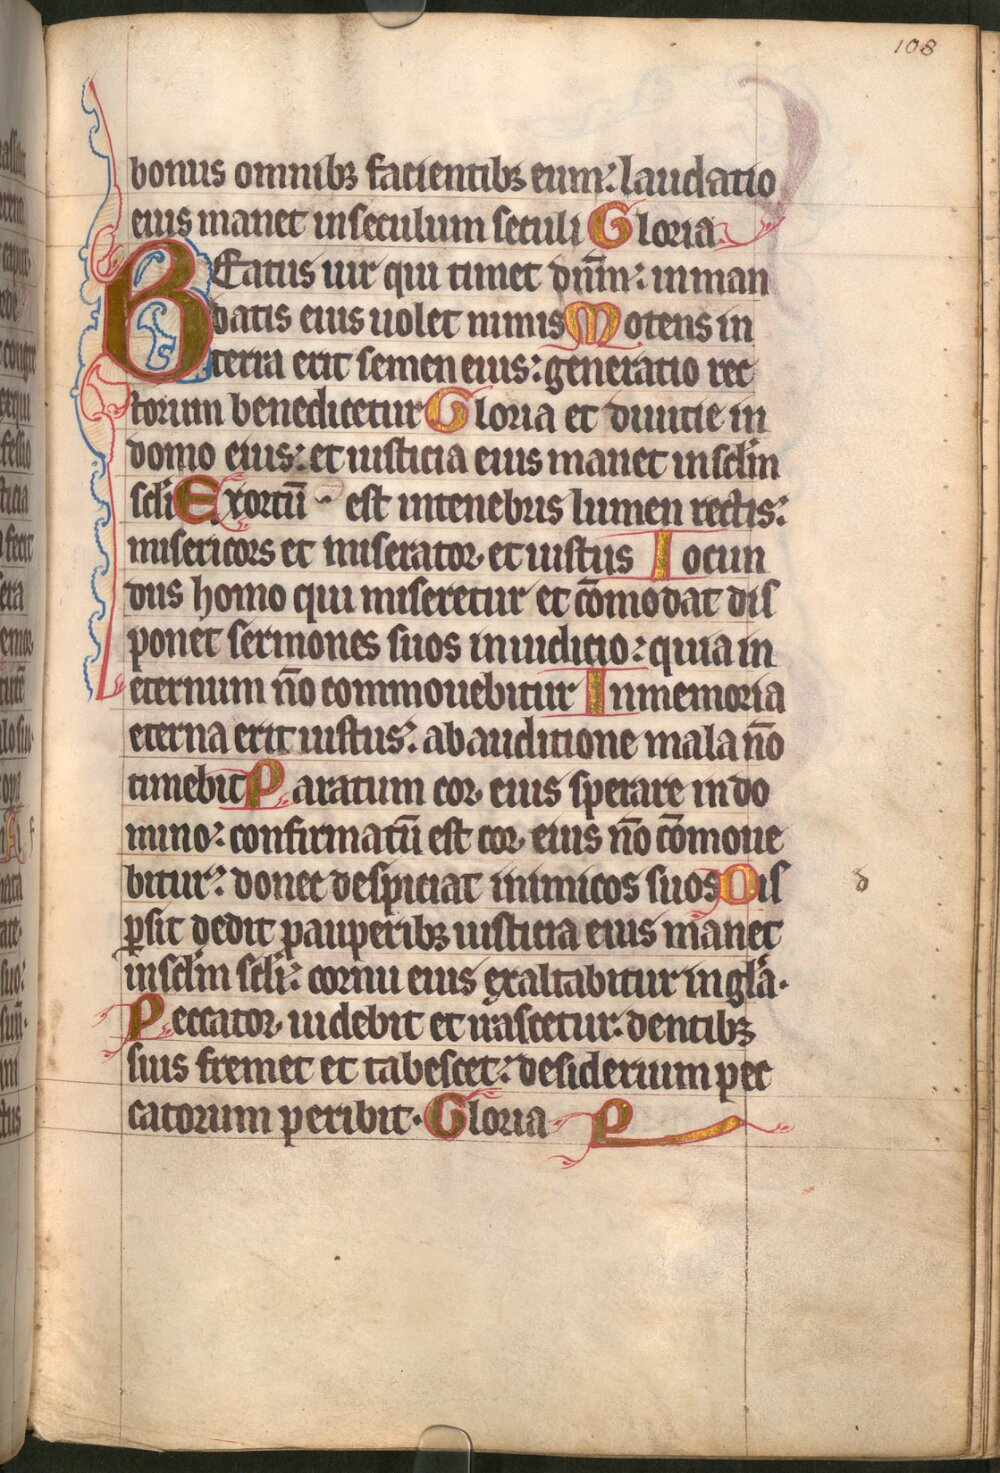 108
bonus omnibꝫ facientibꝫ eum: laudatio
eius manet inseculum seculi Gloria
BEatus uir qui timet dn̄m: inman
datis eius uolet nimis Motens in
terra erit semen eius: generatio rec
torum benedicetur Gloria et diuitie in
domo eius: et iusticia eius manet insclm̄
scli Exortū est intenebris lumen rectis:
misericors et miserator et iustus Iocun
dus homo qui miseretur et cōmodat dis
ponet sermones suos iniudicio: quia in
eternum nō commouebitur Inmemoria
eterna erit iustus: abauditione mala nō
timebit Paratum cor eius sperare indo
mino: confirmatū est cor eius nō cōmoue
bitur: donec despiciat inimicos suos Dis
ꝑsit dedit pauperibꝫ iusticia eius manet
insclm̄ scli: cornu eius exaltabitur inglā.
Peccator uidebit et irascetur: dentibꝫ
suis fremet et tabescet: desiderium pec
catorum peribit. Gloria P
d